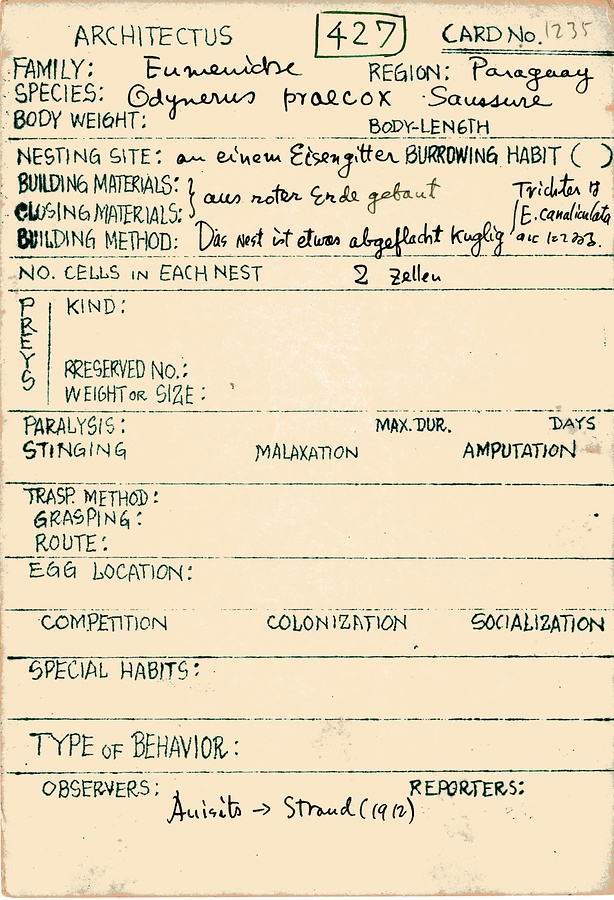 ARCHITECTUS 427 CARD No. 1235
FAMILY: Eumenidae REGION: Paraguay
SPECIES: Odynerus praecox Saussure
BODY WEIGHT: BODY-LENGTH
NESTING SITE: an einem Eisengitter BURROWING HABIT ( )
BUILDING MATERIALS: } aus roter Erde gebaut Trichter
CLOSING MATERIALS: E. canaliculata
BUILDING METHOD: Das Nest ist etwas abgeflacht kuglig
NO. CELLS IN EACH NEST 2 Zellen
PREYS
KIND:
RRESERVED NO.:
WEIGHT OR SIZE:
PARALYSIS: MAX. DUR. DAYS
STINGING MALAXATION AMPUTATION
TRASP. METHOD:
GRASPING:
ROUTE:
EGG LOCATION:
COMPETITION COLONIZATION SOCIALIZATION
SPECIAL HABITS:
TYPE OF BEHAVIOR:
OBSERVERS: REPORTERS:
Anisits → Strand (1912)